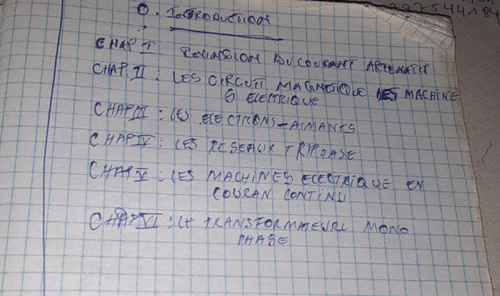 0. INTRODUCTION
CHAP I : REVISSION DU COURANT ALTERNATIF
CHAP. II : LES CIRCUIT MAGNETIQUE DES MACHINE
S ELECTRIQUE
CHAP III : LES ELECTRONS-AIMANTS
CHAP IV : LES RESEAUX TRIPHASE
CHAP V : LES MACHINES ELECTRIQUE EN
COURAN CONTINU
CHAP VI : LE TRANSFORMATEUR MONO
PHASE